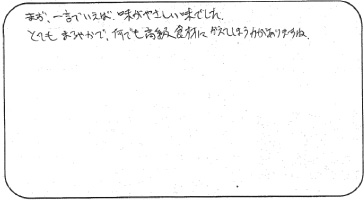 まず、一言でいえば、味がやさしい味でした。
とてもまろやかで、何でも高級食材にかえてしまう力がありますね。